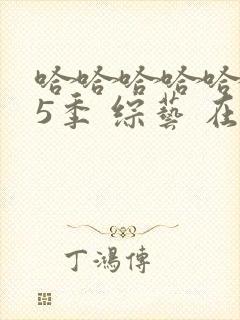 哈哈哈哈哈
5季 综艺 在
丁鴻傳